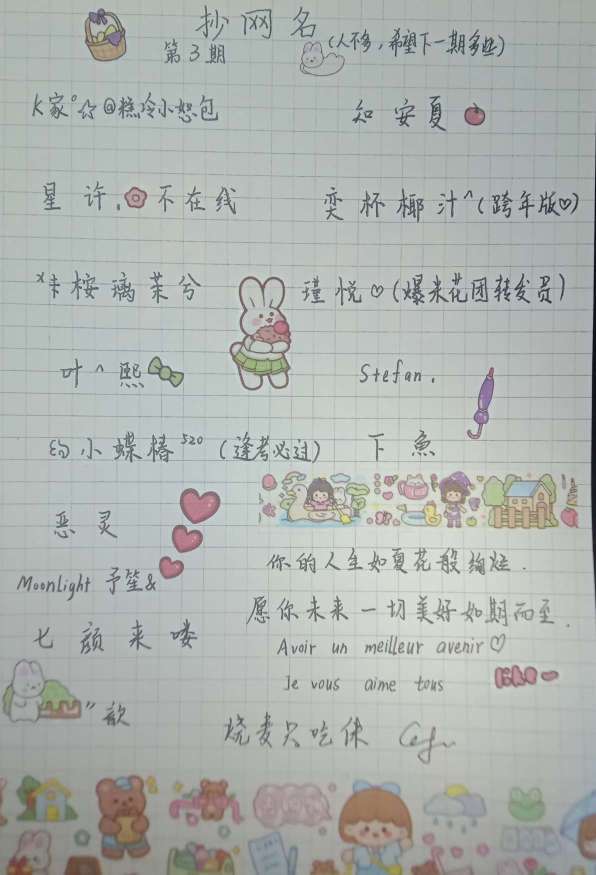 抄网名
第3期 (人不多，希望下一期多些)
K家°☆@糕冷小恕包
知安夏
星许.不在线
奕杯椰汁^(跨年版♡)
桉璃茉兮
瑾悦♡(爆米花团转发员)
叶^熙
Stefan.
小蝶椿520 (逢考必过)
下鱼
恶灵
你的人生如夏花般绚烂.
Moonlight 予笙&
愿你未来一切美好如期而至.
七颜来喽
Avoir un meilleur avenir♡
Je vous aime tous
like
"歆
烧麦只吃侏